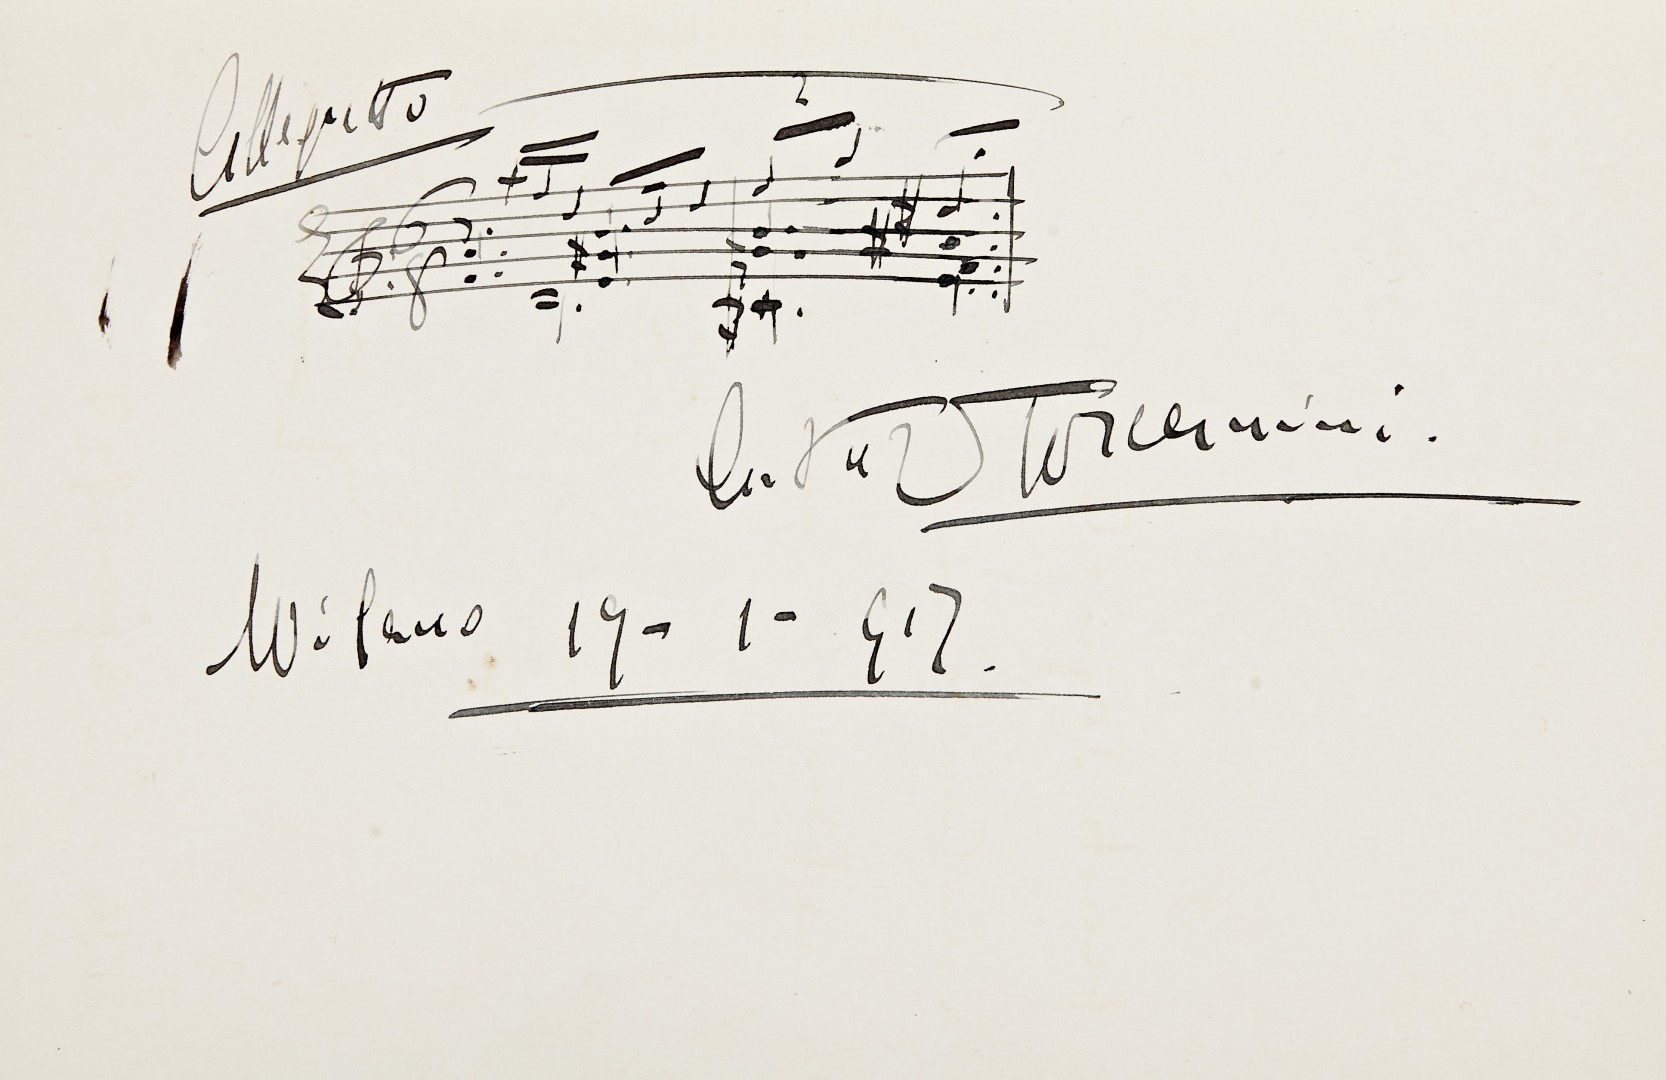 Allegretto
Arturo Toscanini.
Milano 19-1-917.